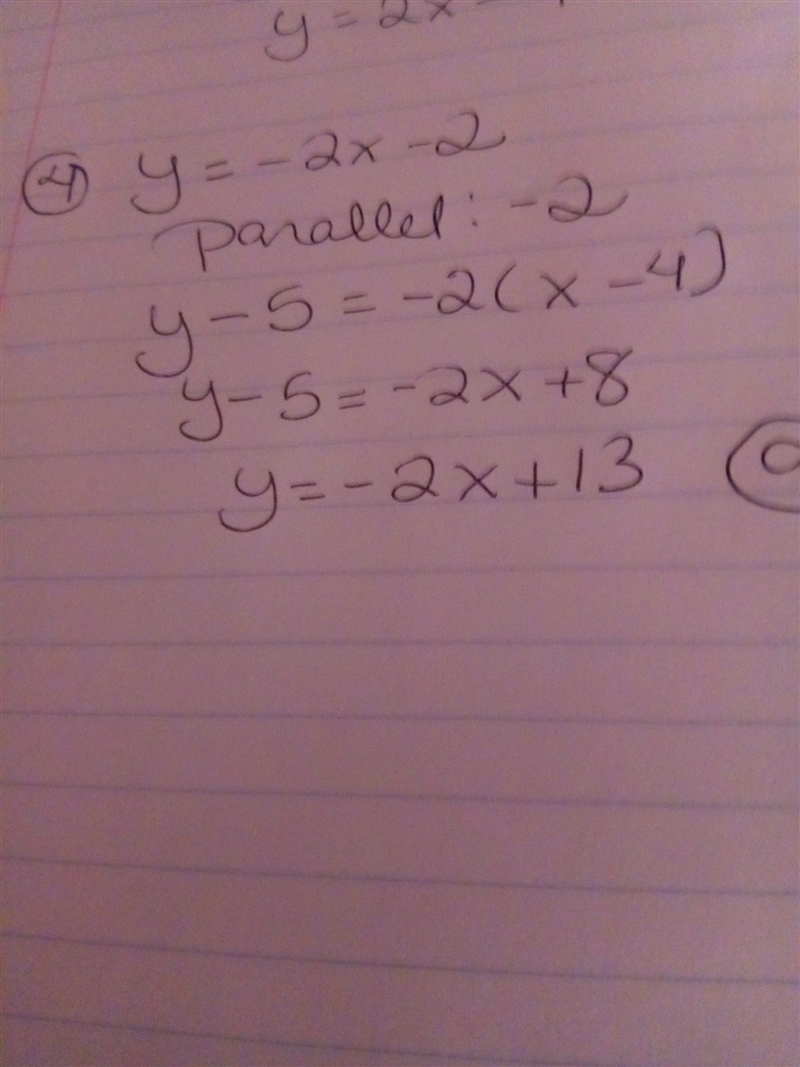 y = 2x
④ y = -2x - 2
parallel: -2
y - 5 = -2(x - 4)
y - 5 = -2x + 8
y = -2x + 13